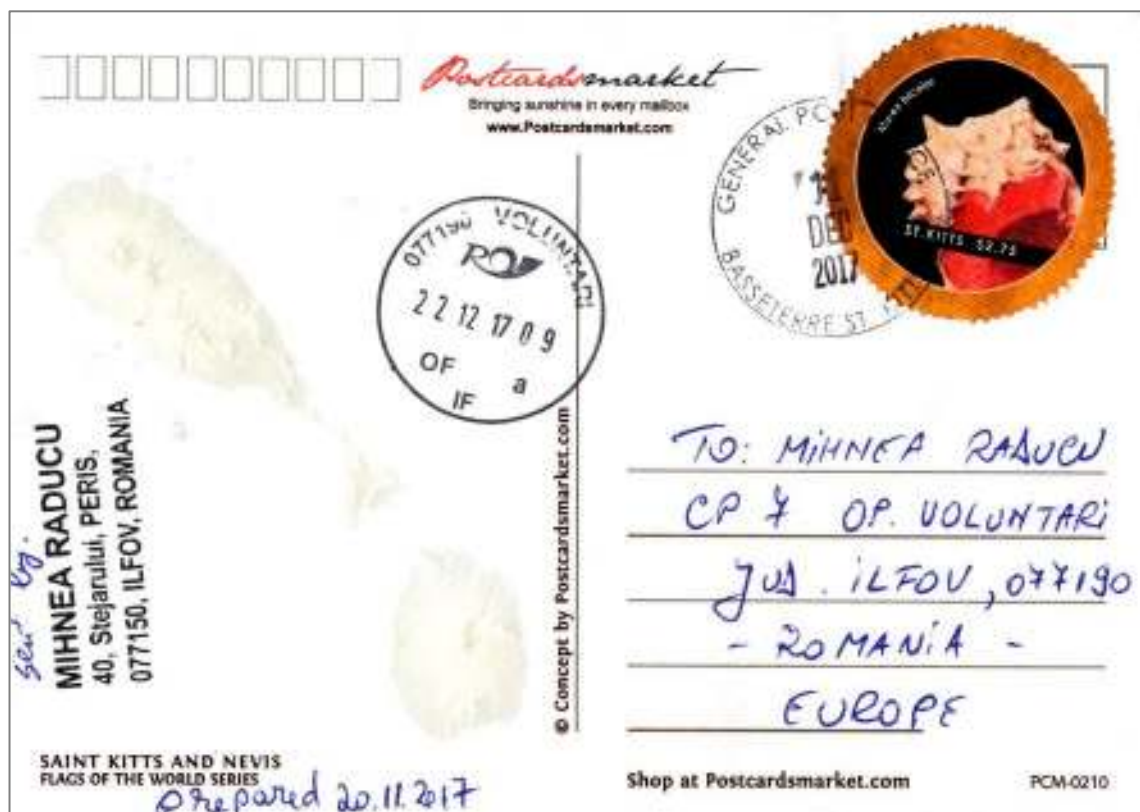 Postcardsmarket
Bringing sunshine in every mailbox
www.Postcardsmarket.com
GENERAL PO
DE
2017
BASSETERRE ST.
ST. KITTS $2.75
077190 VOLUNTARI
22 12 17 09
OF a
IF
sent by.
MIHNEA RADUCU
40, Stejarului, PERIS,
077150, ILFOV, ROMANIA
© Concept by Postcardsmarket.com
TO: MIHNEA RADUCU
CP 7 OP. VOLUNTARI
JUD. ILFOV, 077190
- ROMANIA -
EUROPE
SAINT KITTS AND NEVIS
FLAGS OF THE WORLD SERIES
prepared 20.11.2017
Shop at Postcardsmarket.com
PCM-0210